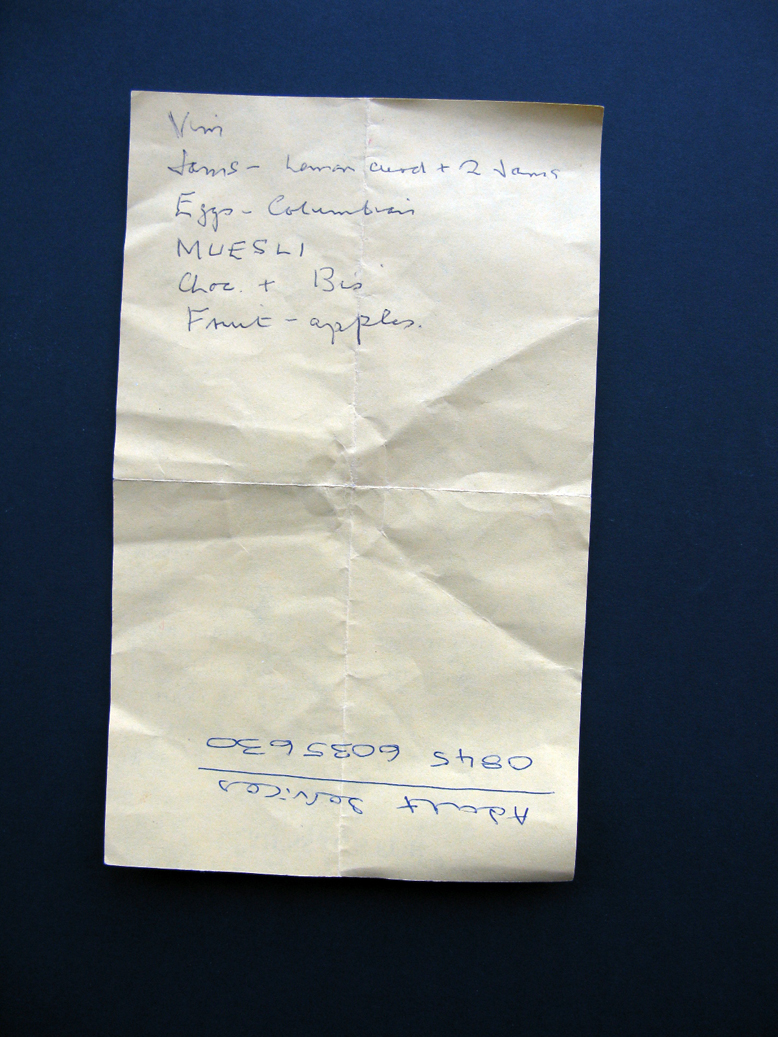 Vim
Jams - Lemon curd + 2 Jams
Eggs - Columbian
MUESLI
Choc. + Bis
Fruit - apples.
Adult Services
0845 6035630